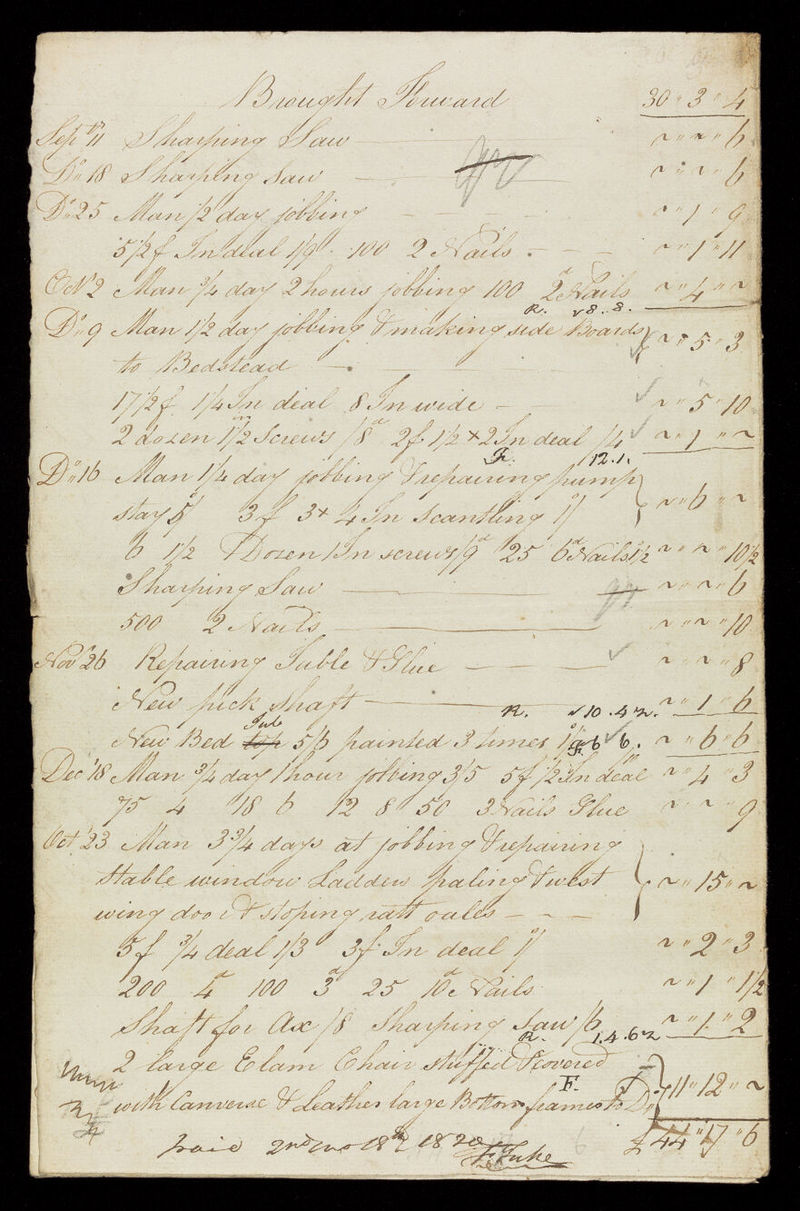 Brought Forward 30 " 3 " 4
Sept 11 Sharping Saw ~ " ~ " 6
Do 18 Sharping Saw ~ " ~ " 6
Do 25 Man 1/2 day jobbing ~ " 1 " 9
5 1/2 f In deal 1/9 100 2 Nails ~ " 1 " 11
Oct 2 Man 3/4 day 2 hours jobbing 100 2d Nails ~ " 4 " ~
R. √8.8.
Do 9 Man 1 1/2 day jobbing & making side Boards
to Bedstead ~ " 5 " 3
17 1/2 f 1 1/4 In deal 8 In wide ~ " 5 " 10
2 dozen 1 1/2 in Screws /8d 2f 1 1/2 + 2 In deal /4 ~ " 1 " ~
F. 12.1.
Do 16 Man 1 1/4 day jobbing & repairing pump
stay 5/ 3f 3 + 4 In Scantling 1/ ~ " 6 " ~
6 1 1/2 Dozen 1 In screws /9d 25 6d Nails 1 1/2 ~ " ~ " 10 1/2
Sharping Saw ~ " ~ " 6
500 2 Nails ~ " ~ " 10
Nov 26 Repairing Table & Glue ~ " ~ " 8
New pick Shaft ~ " 1 " 6
R. √10.4 1/2.
Tub
New Bed 5/5 painted 3 times 1/ ~ " 6 " 6
F. 6 6.
Dec 18 Man 3/4 day 1 hour jobbing 3/5 5f 1/2 In deal ~ " 4 " 3
75 4 18 6 12 8 50 3 Nails Glue ~ " ~ " 9
Oct 23 Man 3 3/4 days at jobbing & repairing
Stable window Ladders paling & west
wing door & stoping ratt oales ~ " 15 " ~
5f 3/4 deal 1/3 3f In deal 1/ ~ " 2 " 3
200 4d 100 3d 25 10d Nails ~ " 1 " 1 1/2
Shaft for Ax /8 Sharping Saw /6 ~ " 1 " 2
R. 1.4.6 1/2
2 large Elam Chair stuffed & covered
F.
with Canverse & Leather large Bottom frames to Do 11 " 12 " ~
£44 " 17 " 6
paid 2nd mo 18th 1820 F. Tuke